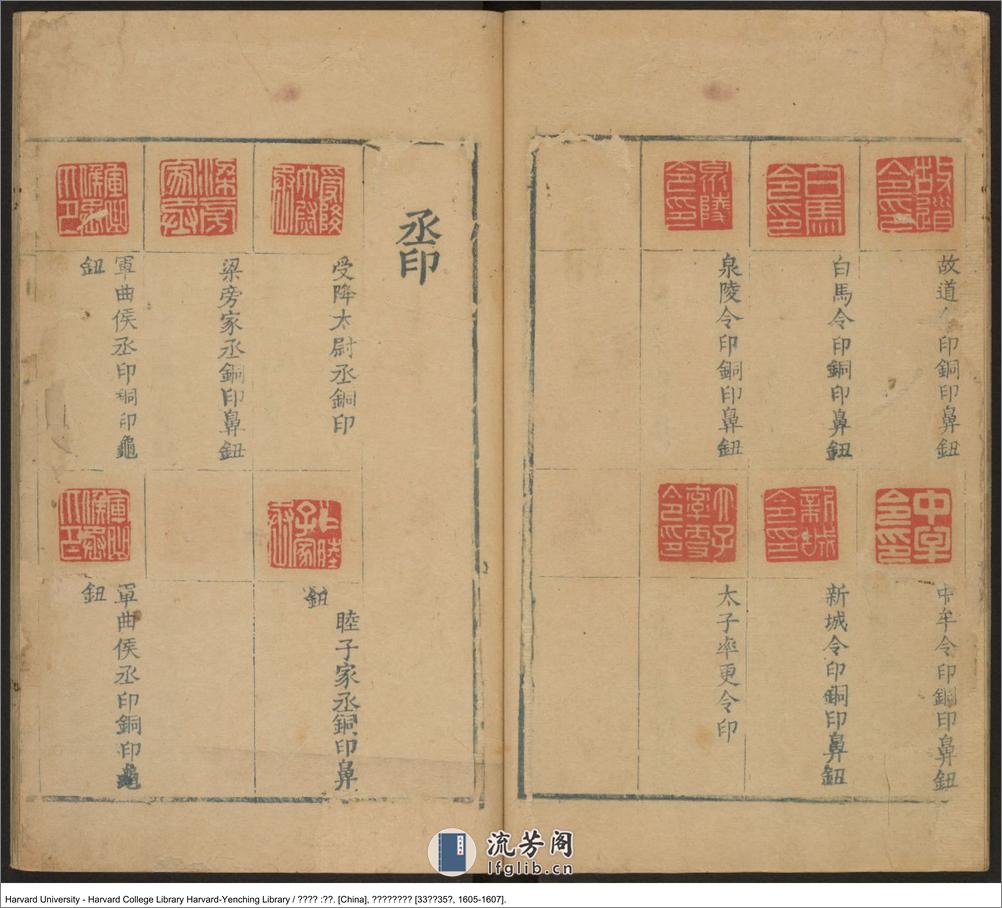 故道
印銅印鼻鈕
白馬令印銅印鼻鈕
泉陵令印銅印鼻鈕
中牟令印銅印鼻鈕
新城令印銅印鼻鈕
太子率更令印
丞印
受降太尉丞銅印
梁旁家丞銅印鼻鈕
軍曲侯丞印銅印龜
鈕
睦子家丞銅印鼻
鈕
軍曲侯丞印銅印龜
鈕
故道令印
白馬令印
泉陵令印
中牟令印
新城令印
流芳阁
lfglib.cn
Harvard University - Harvard College Library Harvard-Yenching Library / ???? :??. [China], ???????? [33??35?, 1605-1607].